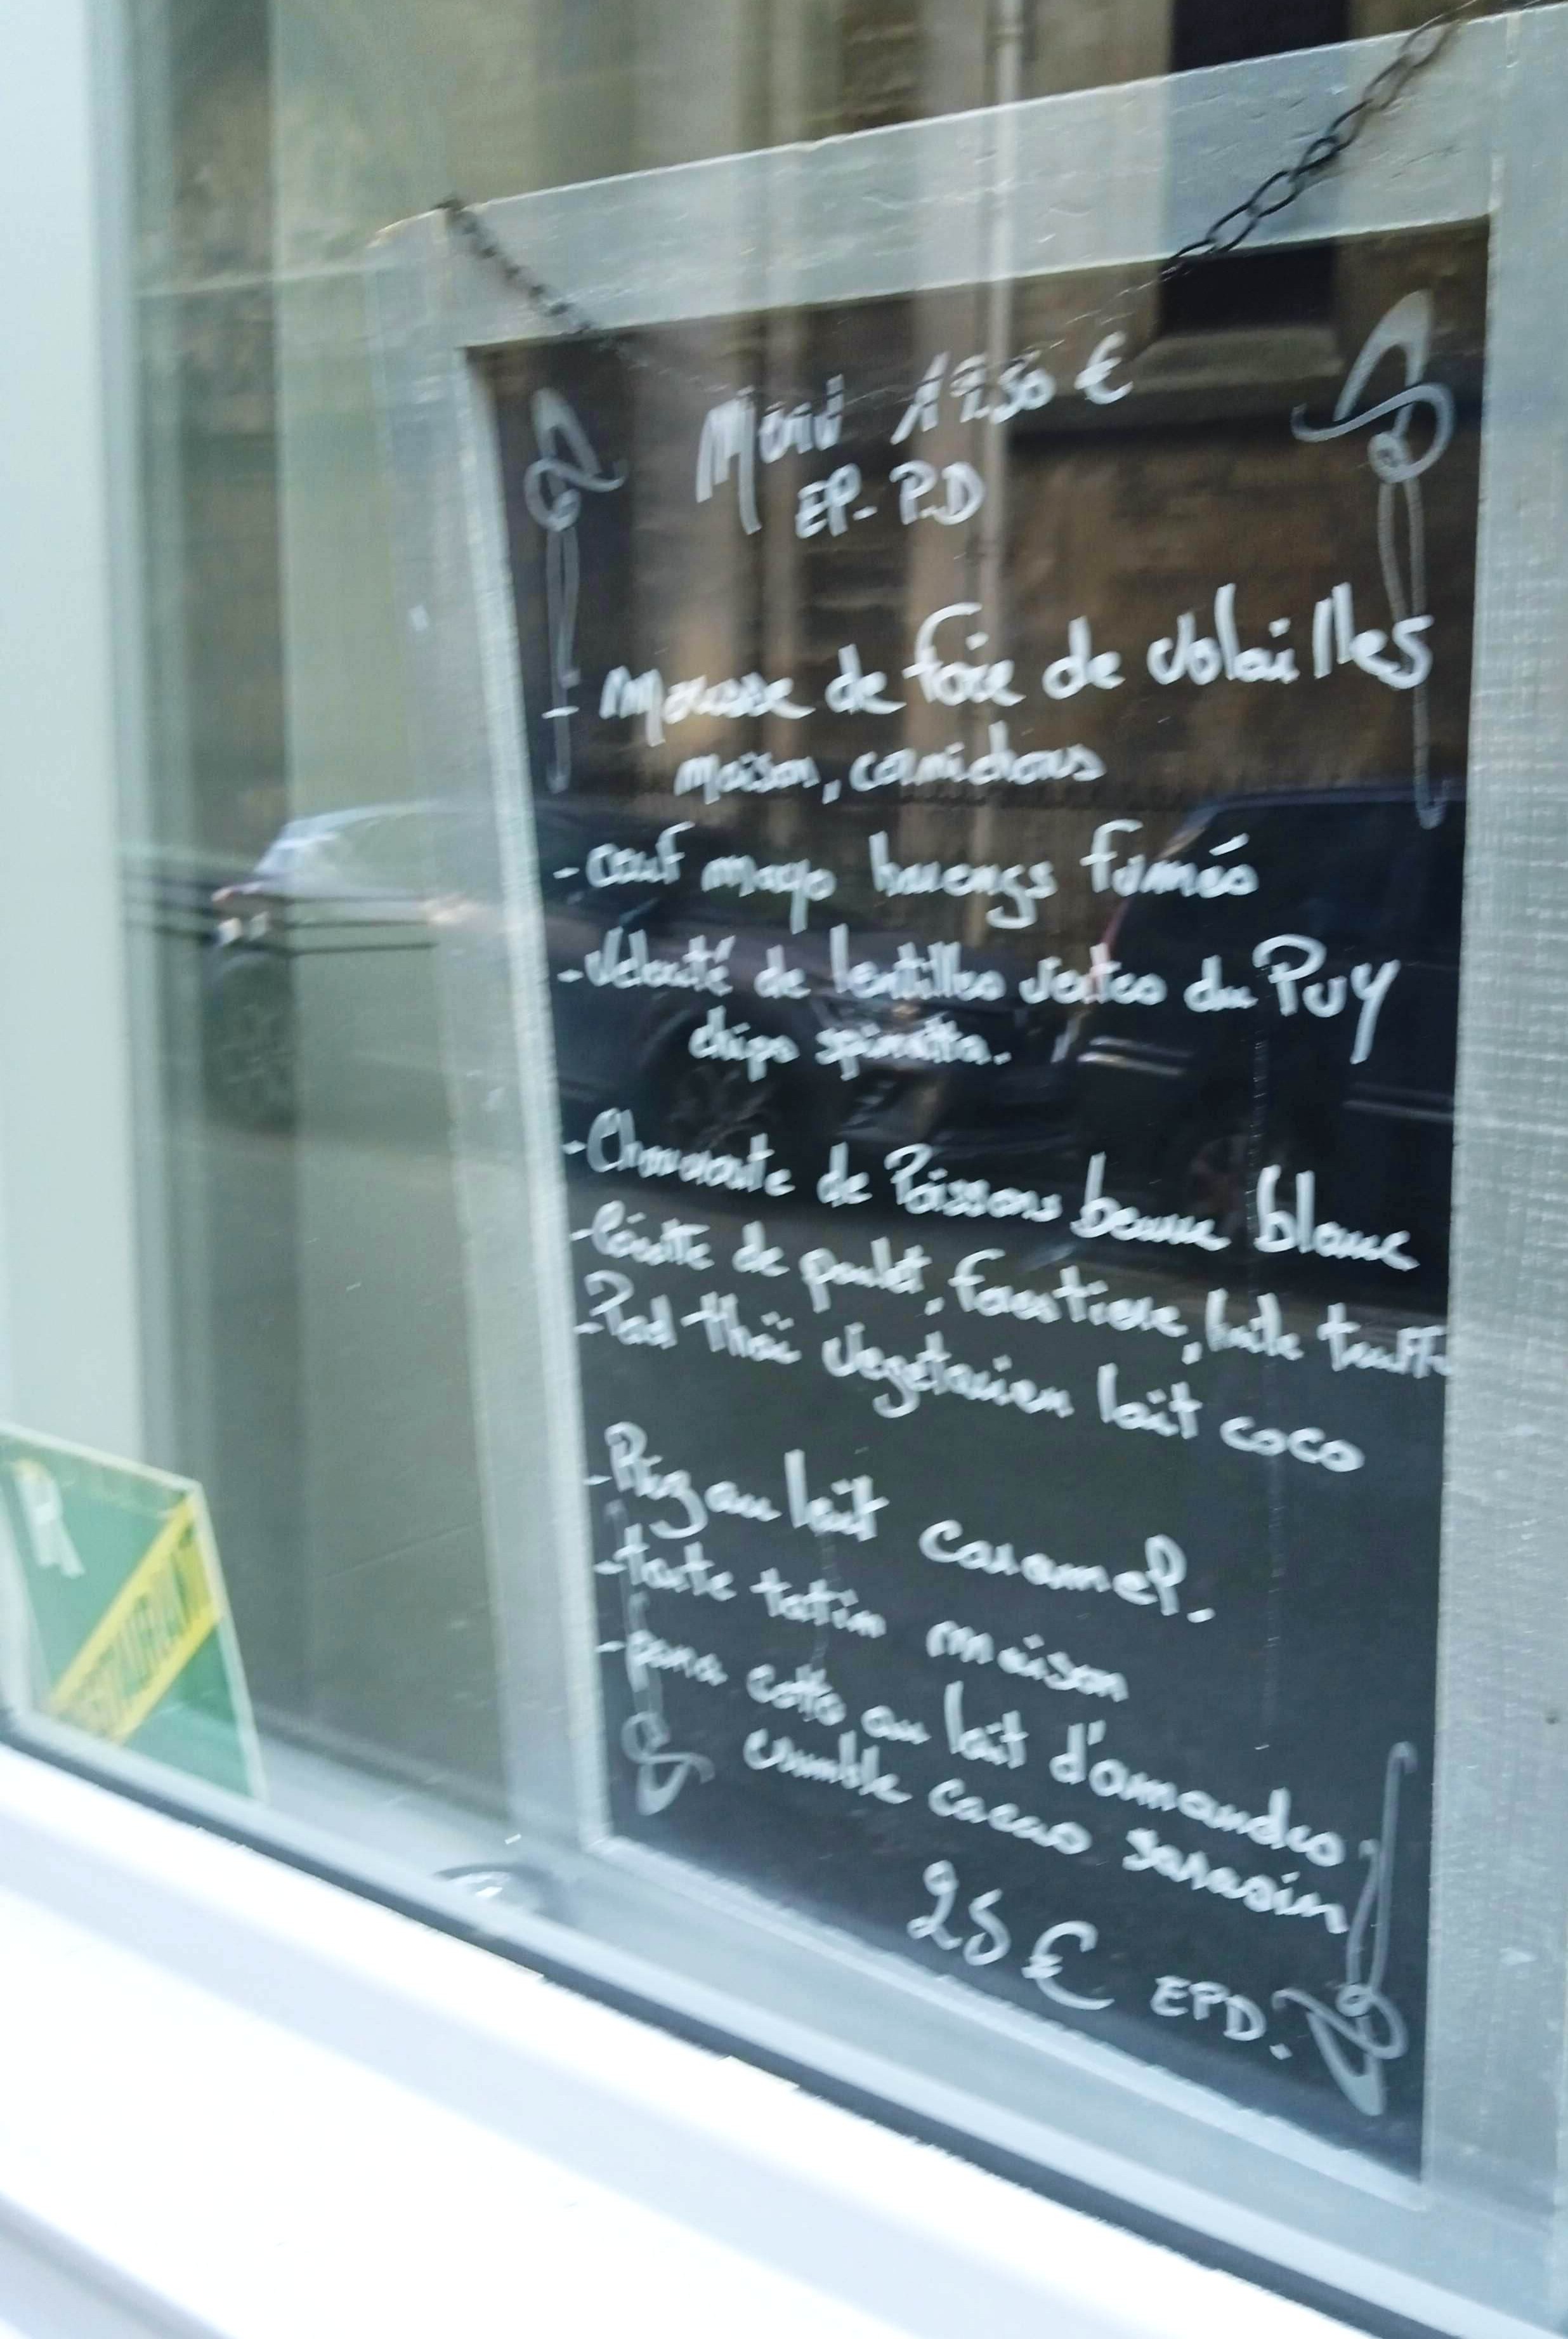 Menu 17.50 €
EP-P.D
- Mousse de foie de volailles
maison, cornichons
- oeuf mayo harengs fumés
- Velouté de lentilles vertes du Puy
chips
- de Poissons beurre blanc
- de poulet, forestière, huile truffe
- Pad thaï végétarien lait coco
- Riz au lait caramel.
- tarte tatin maison
- pana cotta au lait d'amandes.
crumble cacao sarasin
25 € EPD.
R
RESTAURANT